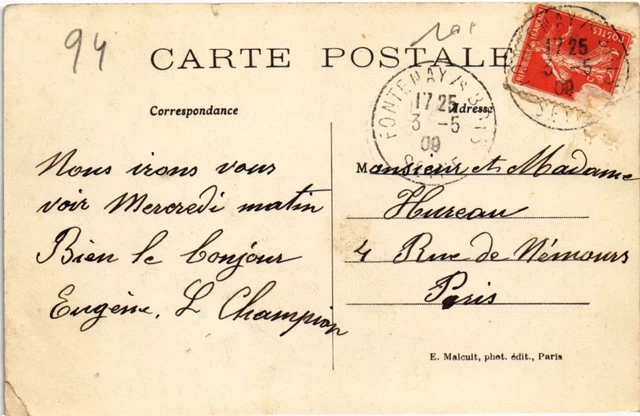 94
CARTE POSTALE
Correspondance
Adresse
FONTENAY/S BOIS
17 25
3 - 5
09
SEINE
17 25
3 - 5
09
REPUBLIQUE FRANÇAISE
POSTES
Nous irons vous
voir Mercredi matin
Bien le bonjour
Eugène. L Champion
Monsieur et Madame
Hureau
4 Rue de Némours
Paris
E. Malcuit, phot. édit., Paris